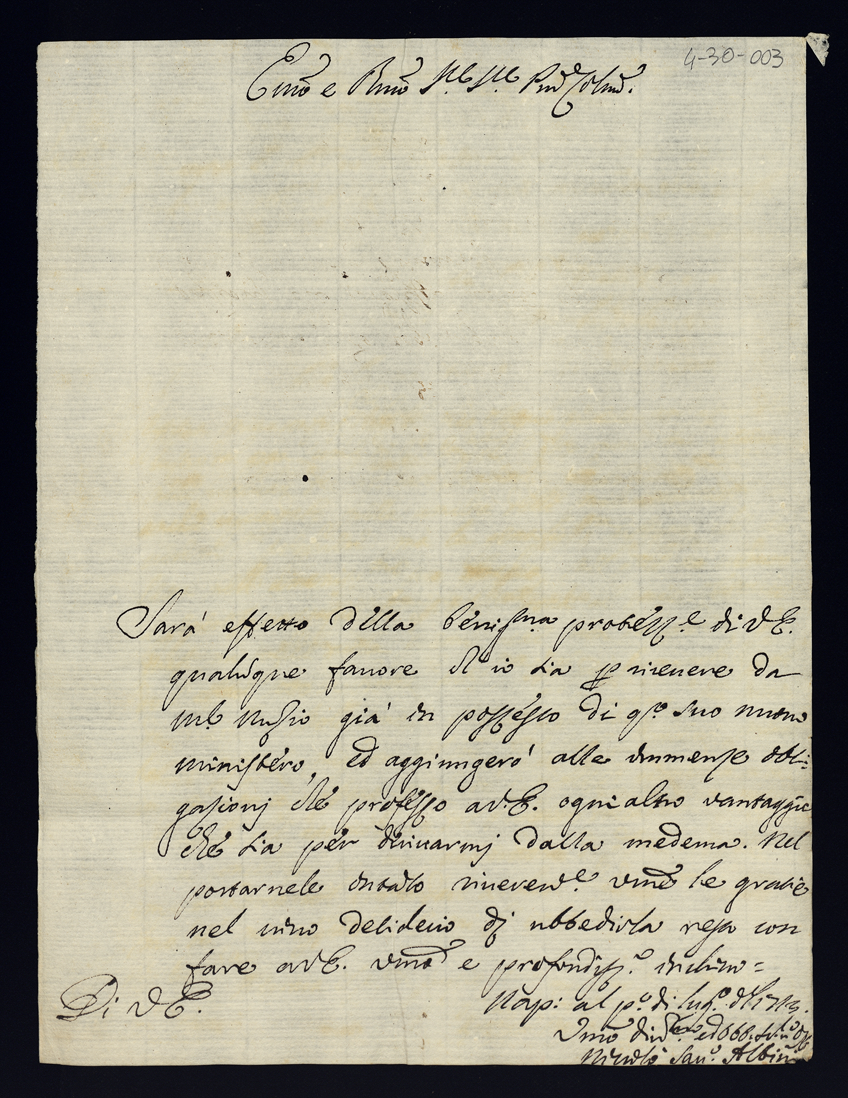 4-30-003
Emo e Rmo Sig.re Sig.re Pne Colmo.
Sarà effetto della benigna protezz.e di V.E.
qualunque favore ch'io sia p ricevere da
già in possesso di q.to suo nuovo
ministero, ed aggiungerò alle immense obli=
gationj che professo a V.E. ogni altro vantaggio
che sia per derivarmj dalla medema. Nel
portarnele intanto riverent.e le gratie
nel vivo desiderio dj ubbedirla resto con
fare a V.E. e profondiss.o inchino=
Di V.E.
Nap: al p.o di lug.o 1713.
Nicolò San.o Albin